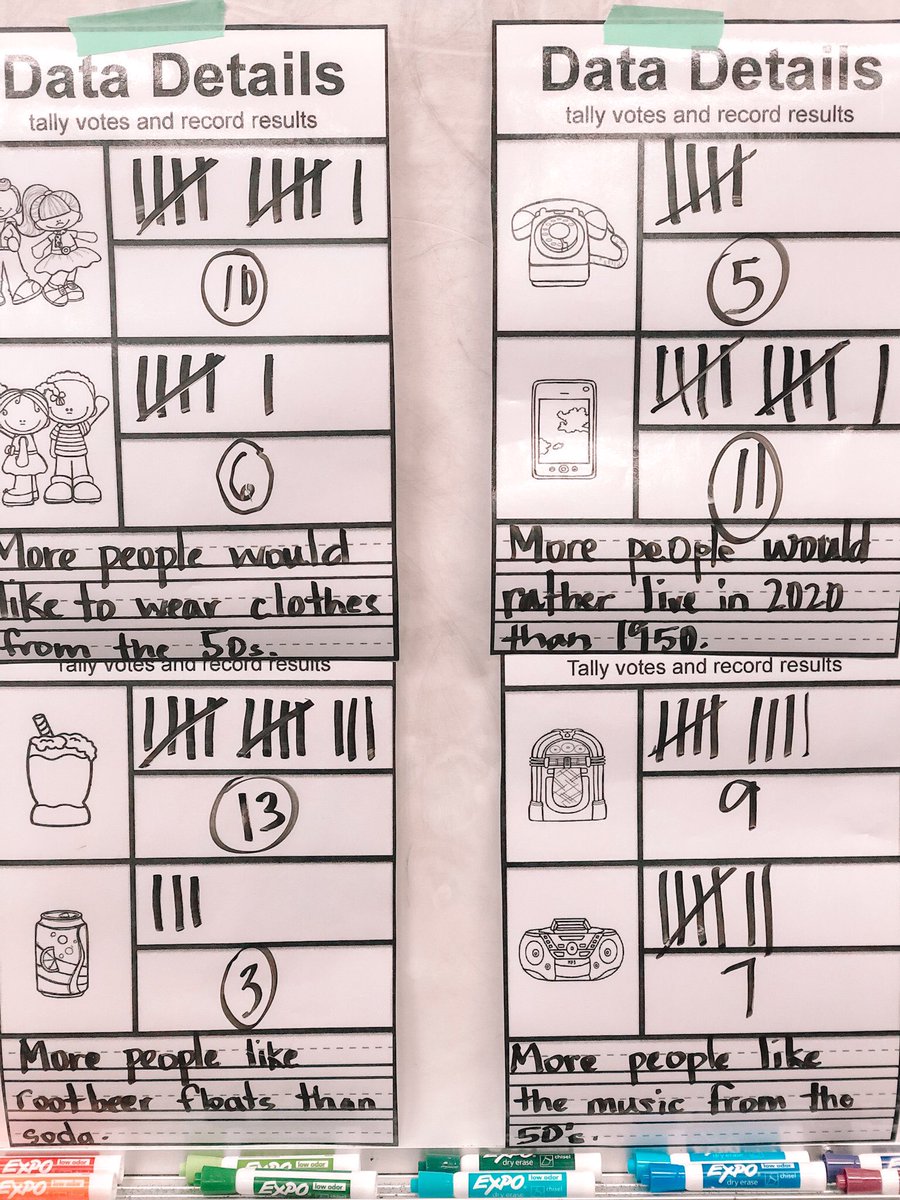 Data Details
tally votes and record results
10
6
More people would
like to wear clothes
from the 50s.
Data Details
tally votes and record results
5
11
More people would
rather live in 2020
than 1950.
Tally votes and record results
13
3
More people like
rootbeer floats than
soda.
Tally votes and record results
9
MP3
7
More people like
the music from the
50's.
EXPO low odor
EXPO
low odor
EXPO low odor
EXPO dry erase chisel
EXPO dry erase
EXPO dry erase